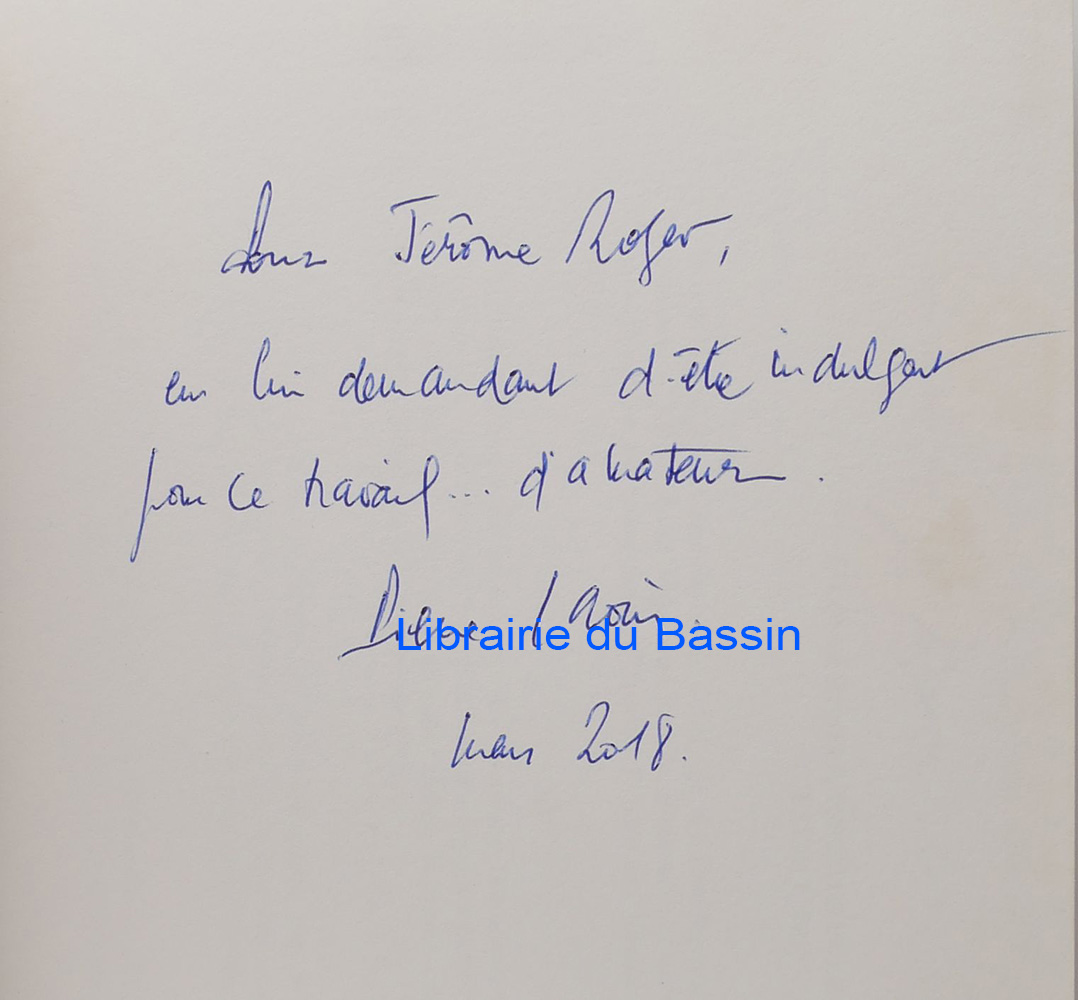 Pour Jérôme Roger,
en lui demandant d'être indulgent
pour ce travail... d'amateur.
Librairie du Bassin
mars 2018.